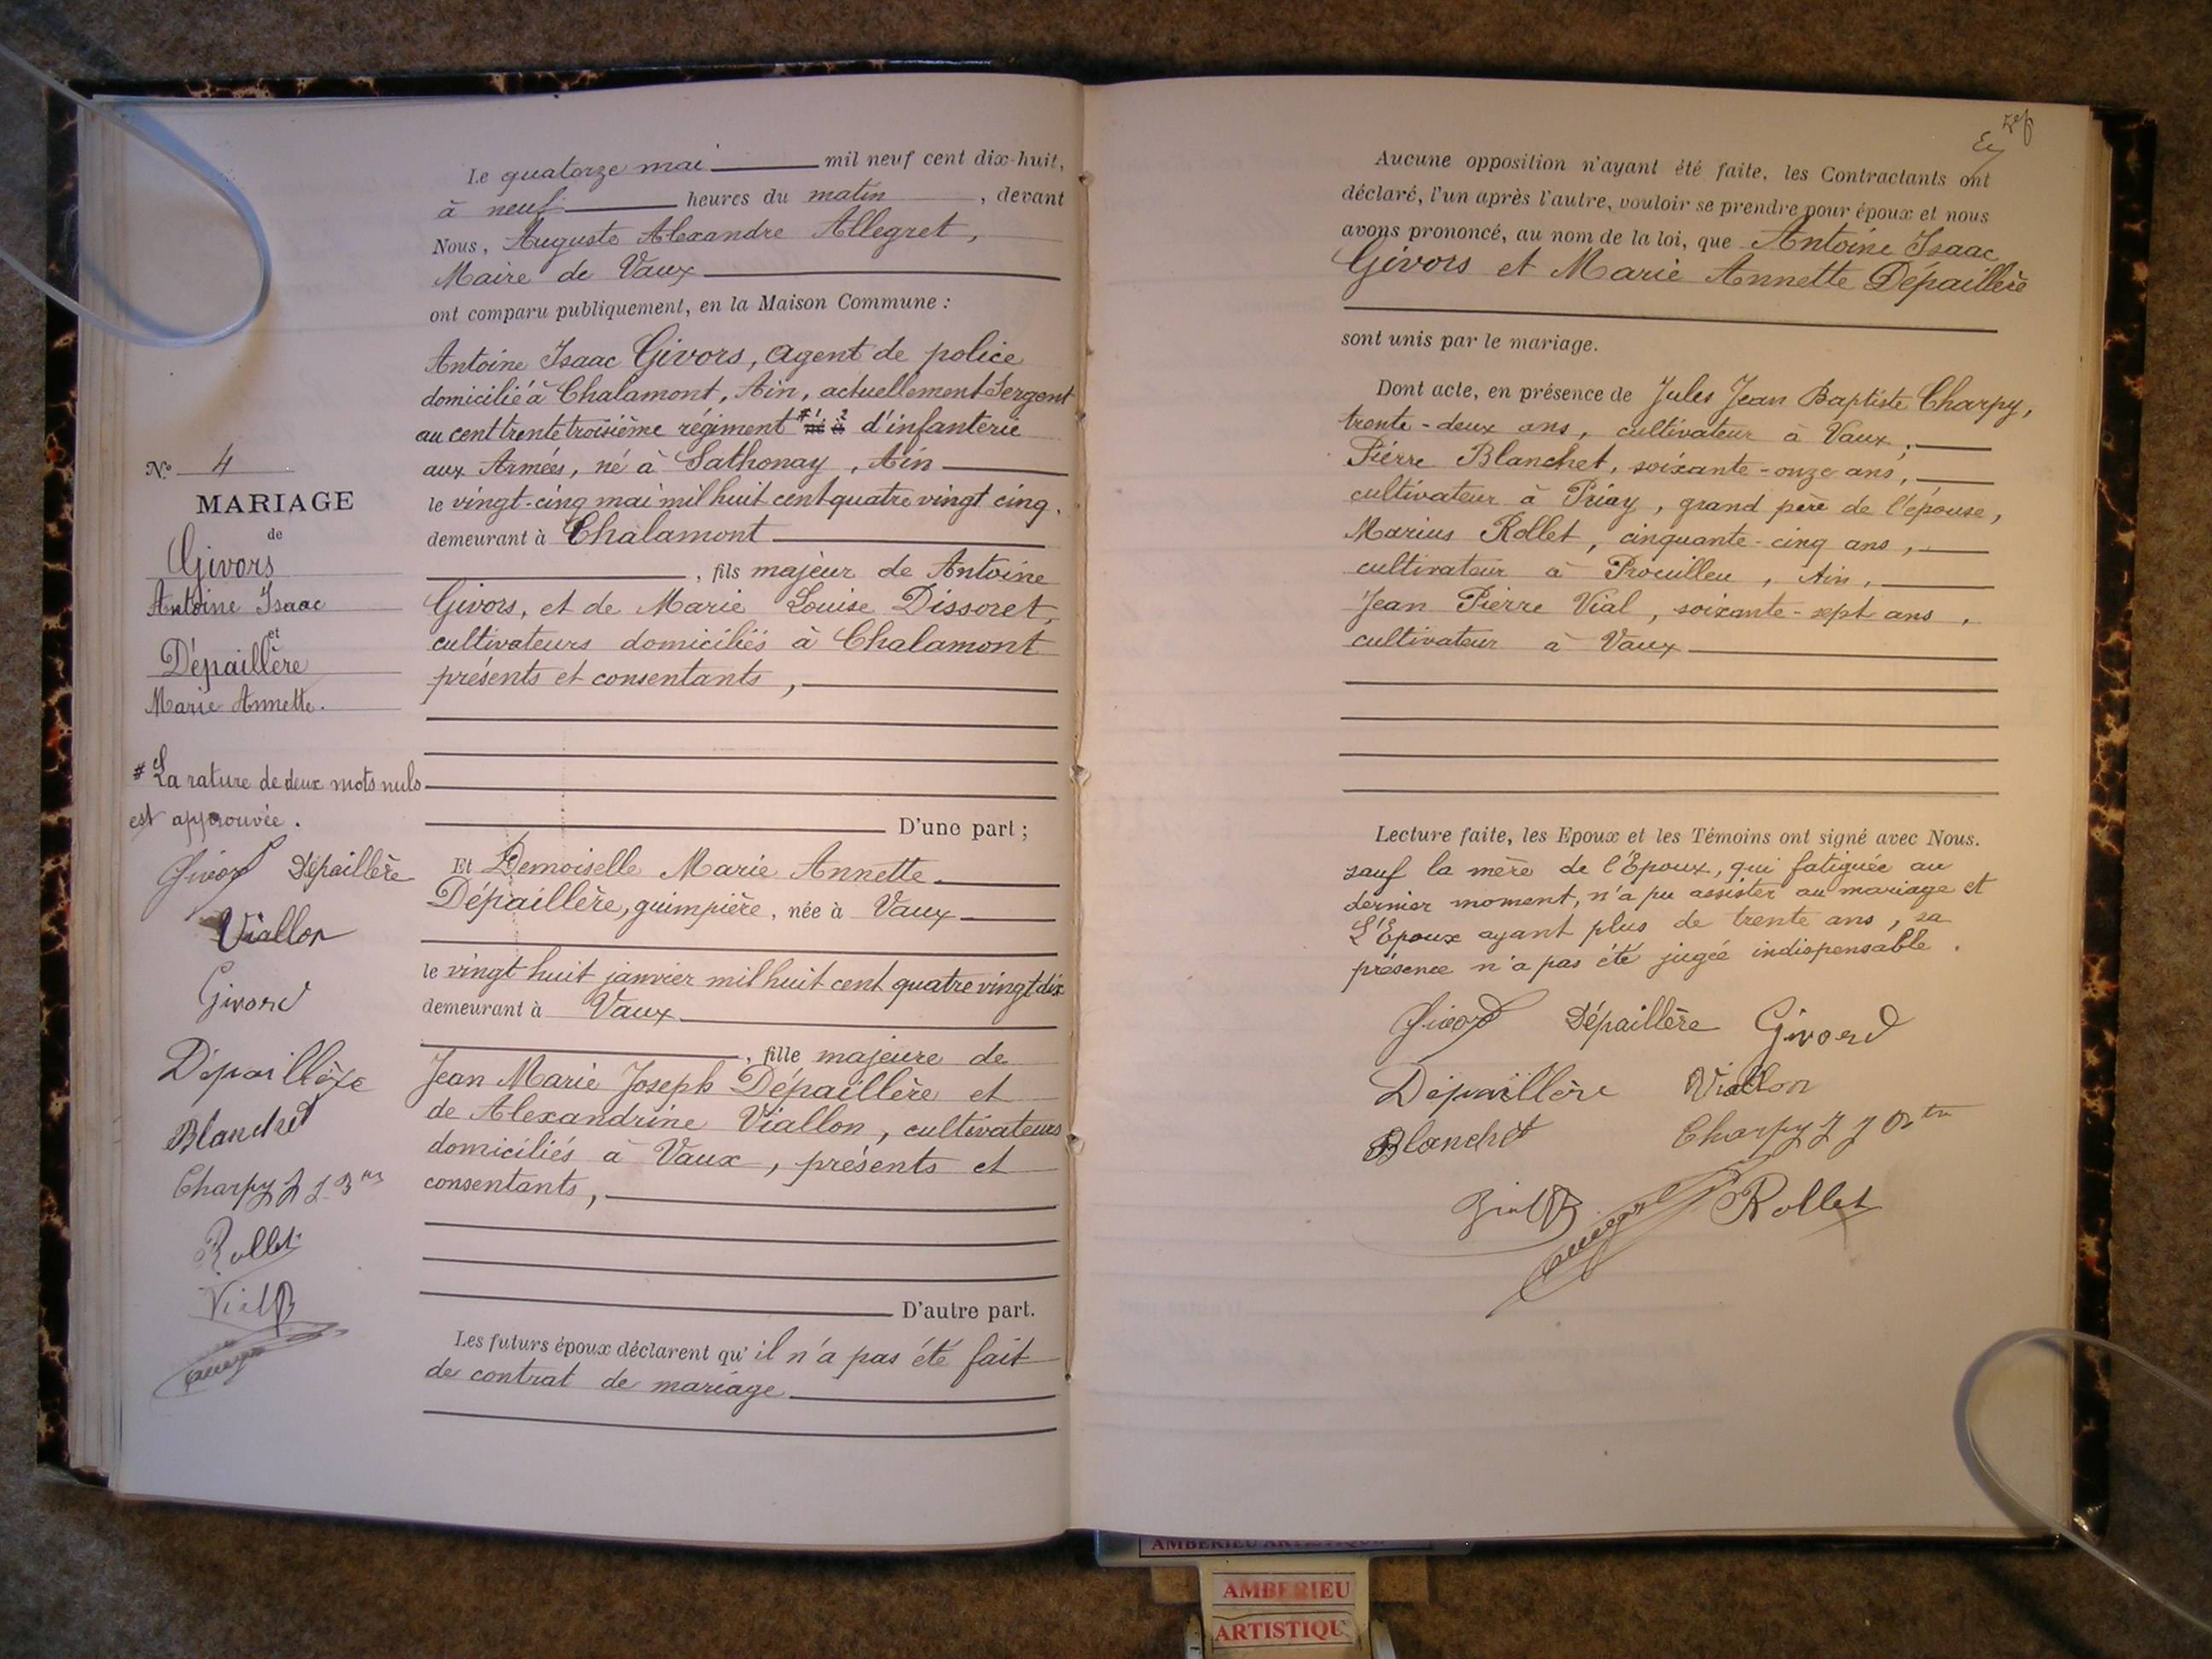 N° 4
MARIAGE
de
Givors
Antoine Isaac
et
Dépaillère
Marie Annette.
# La rature de deux mots nuls
est approuvée.
Givord Dépaillère
Viallon
Givord
Dépaillère
Blanchet
Charpy J J Bte
Rollet
Vial
Le quatorze mai mil neuf cent dix-huit,
à neuf heures du matin, devant
Nous, Auguste Alexandre Allegret,
Maire de Vaux
ont comparu publiquement, en la Maison Commune :
Antoine Isaac Givors, agent de police
domicilié à Chalamont, Ain, actuellement Sergent
au cent trente troisième régiment # né à d'infanterie
aux Armées, né à Sathonay, Ain
le vingt-cinq mai mil huit cent quatre vingt cinq,
demeurant à Chalamont
, fils majeur de Antoine
Givors, et de Marie Louise Dissoret,
cultivateurs domiciliés à Chalamont
présents et consentants,
D'une part ;
Et Demoiselle Marie Annette
Dépaillère, guimpière, née à Vaux
le vingt huit janvier mil huit cent quatre vingt dix
demeurant à Vaux
, fille majeure de
Jean Marie Joseph Dépaillère et
de Alexandrine Viallon, cultivateurs
domiciliés à Vaux, présents et
consentants,
D'autre part.
Les futurs époux déclarent qu'il n'a pas été fait
de contrat de mariage
Aucune opposition n'ayant été faite, les Contractants ont
déclaré, l'un après l'autre, vouloir se prendre pour époux et nous
avons prononcé, au nom de la loi, que Antoine Isaac
Givors et Marie Annette Dépaillère
sont unis par le mariage.
Dont acte, en présence de Jules Jean Baptiste Charpy,
trente-deux ans, cultivateur à Vaux,
Pierre Blanchet, soixante-onze ans,
cultivateur à Priay, grand père de l'épouse,
Marius Rollet, cinquante-cinq ans,
cultivateur à Prouilleu, Ain,
Jean Pierre Vial, soixante-sept ans,
cultivateur à Vaux
Lecture faite, les Epoux et les Témoins ont signé avec Nous.
sauf la mère de l'Epoux, qui fatiguée au
dernier moment, n'a pu assister au mariage et
L'Epoux ayant plus de trente ans, sa
présence n'a pas été jugée indispensable.
Givord Dépaillère Givord
Dépaillère Viallon
Blanchet Charpy J J Bte
Vial Rollet
AMBERIEU
AMBERIEU
ARTISTIQU